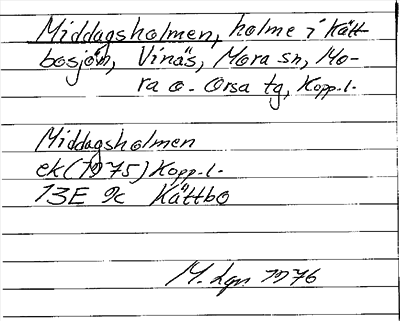 Middagsholmen, holme i Kätt-
bosjön, Vinäs, Mora sn, Mo-
ra o. Orsa tg, Kopp. l.
Middagsholmen
ek (1975) Kopp. l.
13E 9c Kättbo
M. Lgn 1976